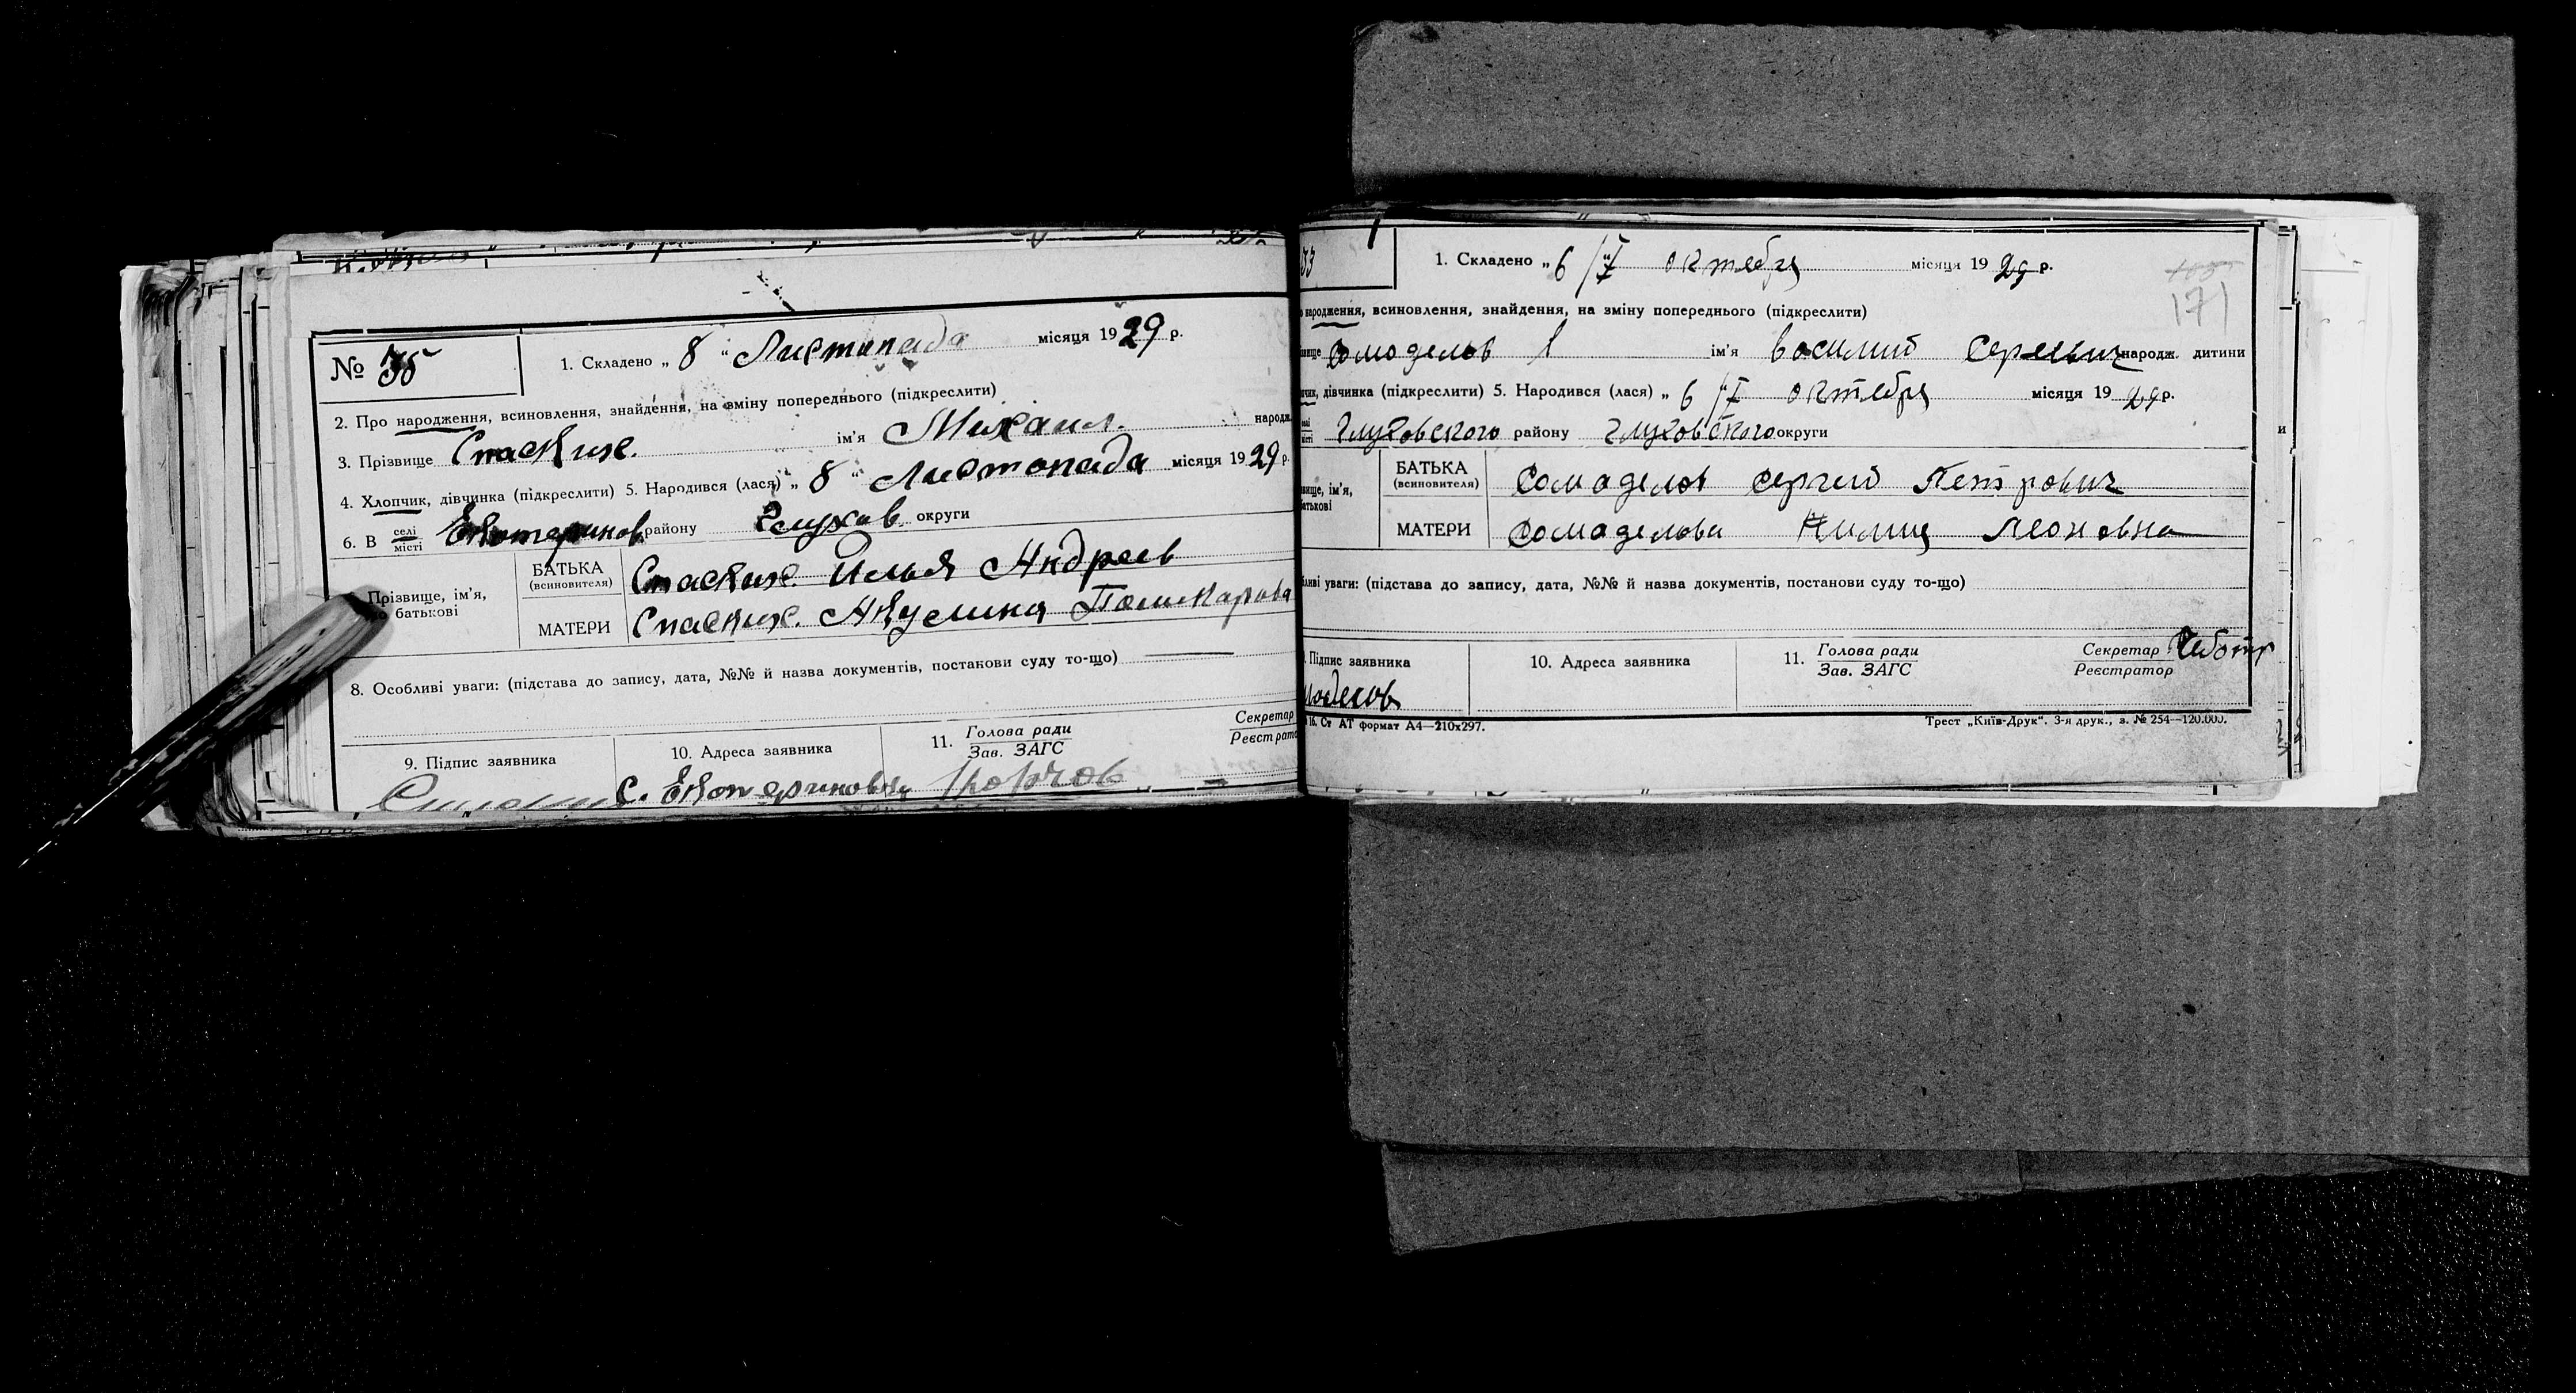 № 38
1. Складено „ 8 “ Листопада місяця 1929 р.
2. Про народження, всиновлення, знайдення, на зміну попереднього (підкреслити)
3. Прізвище ім'я Михаил. народж.
4. Хлопчик, дівчинка (підкреслити) 5. Народився (лася) „ 8 “ Листопада місяця 1929 р.
6. В селі місті Екатеринов району Глухов округи
Прізвище, ім'я, по батькові
БАТЬКА (всиновителя) Илья Андреев
МАТЕРИ Акулина Поликарпова
8. Особливі уваги: (підстава до запису, дата, №№ й назва документів, постанови суду то-що)
9. Підпис заявника 10. Адреса заявника 11. Голова ради Зав. ЗАГС Секретар Реєстрато
С. Екатериновка
33
1. Складено „ 6 / октября місяця 1929 р.
171
народження, всиновлення, знайдення, на зміну попереднього (підкреслити)
Сомоделов ім'я Василий Сергеевич народж. дитини
дівчинка (підкреслити) 5. Народився (лася) „ 6 / октября місяця 1929 р.
Глуховского району Глуховского округи
вище, ім'я, батькові
БАТЬКА (всиновителя) Сомоделов Сергей Петрович
МАТЕРИ Сомоделова Леоновна
уваги: (підстава до запису, дата, №№ й назва документів, постанови суду то-що)
Підпис заявника 10. Адреса заявника 11. Голова ради Зав. ЗАГС Секретар Реєстратор
16. Ст АТ формат А4—210х297.
Трест „Київ-Друк“. 3-я друк., з. № 254—120.000.